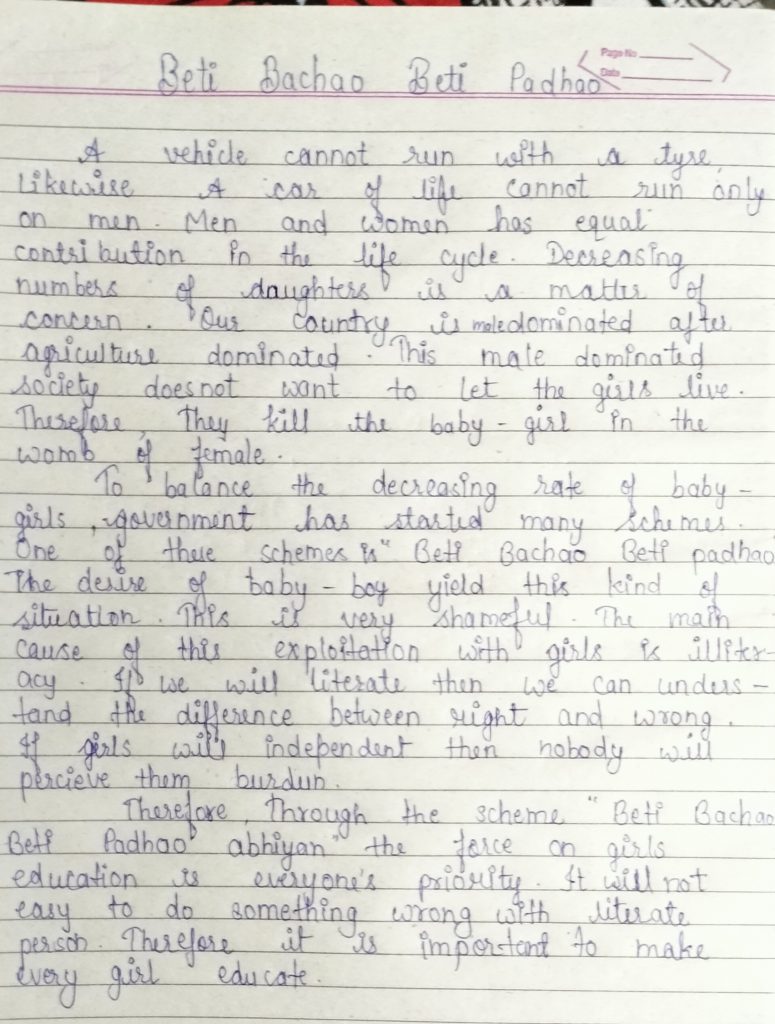 Page No
Date
Beti Bachao Beti Padhao
A vehicle cannot run with a tyre,
likewise A car of life cannot run only
on men. Men and women has equal
contribution in the life cycle. Decreasing
numbers of daughters is a matter of
concern. Our country is maledominated after
agriculture dominated. This male dominated
society doesnot want to let the girls live.
Therefore, they kill the baby-girl in the
womb of female.
To balance the decreasing rate of baby-
girls, government has started many schemes.
One of these schemes is "Beti Bachao Beti padhao
The desire of baby-boy yield this kind of
situation. This is very shameful. The main
cause of this exploitation with girls is illiter-
acy. If we will literate then we can unders-
tand the difference between right and wrong.
If girls will independent then nobody will
percieve them burdun.
Therefore, through the scheme "Beti Bachao
Beti Padhao abhiyan" the force on girls
education is everyone's priority. It will not
easy to do something wrong with literate
person. Therefore it is important to make
every girl educate.